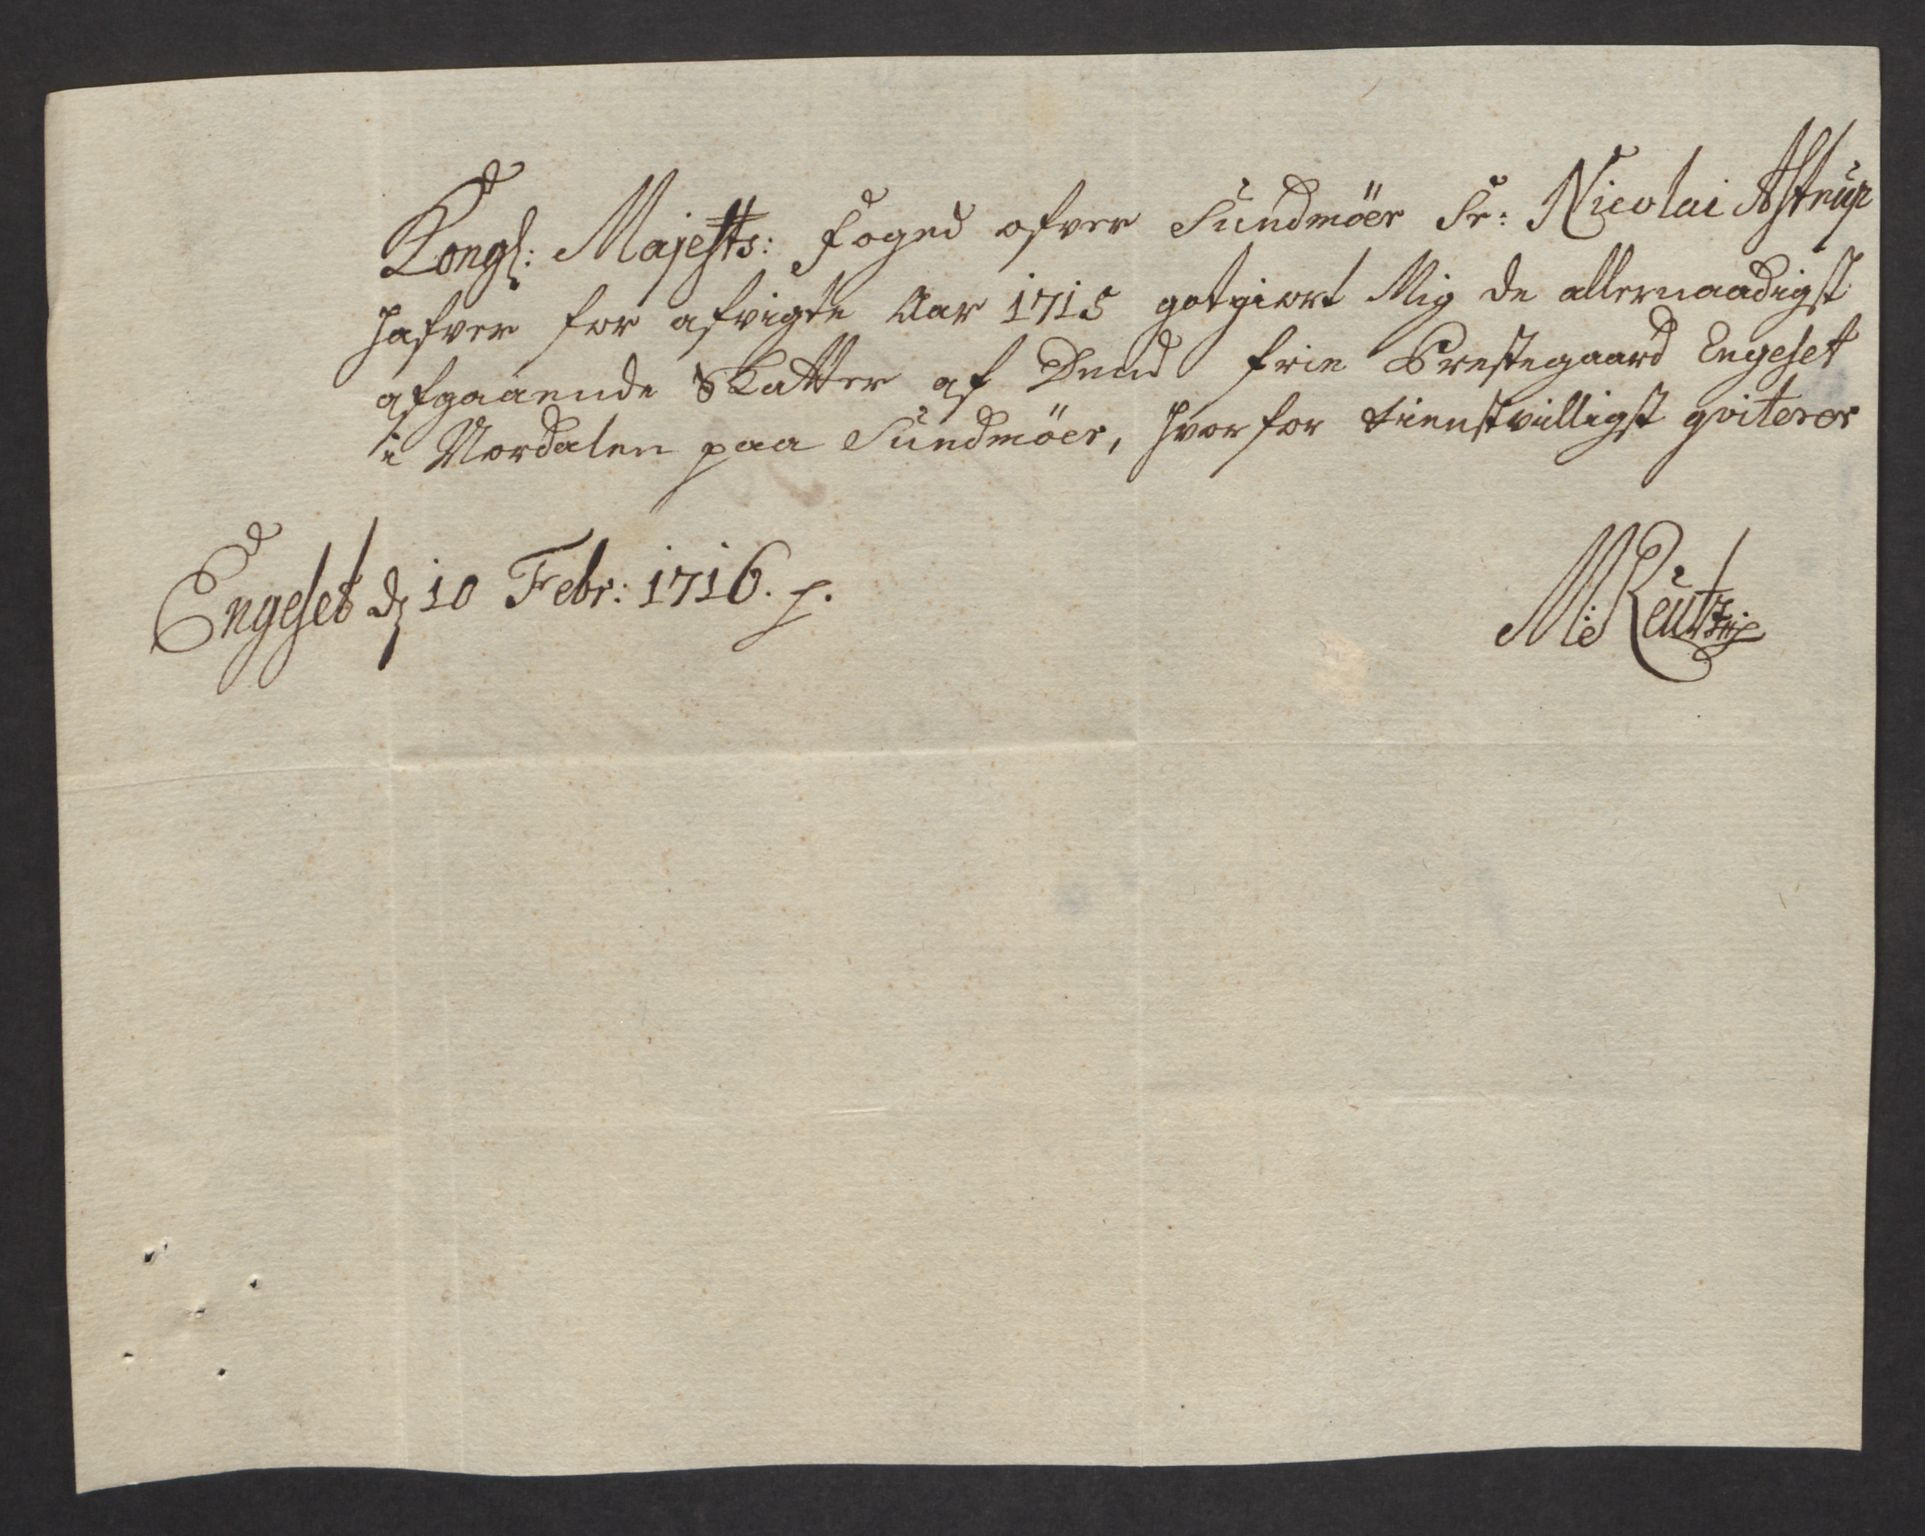 Kongl: Majestts: foged ofver Sundmöer Sr: Nicolai Astrup
hafver for afvigte Aar 1715 gotgiort Mig de allernaadigst
afgaaende Skatter af Dend frie Prestegaard Engeset
i Nordalen paa Sundmöer, hvorfor tienstvilligst qviterer
Engeset d 10 Febr: 1716. p.